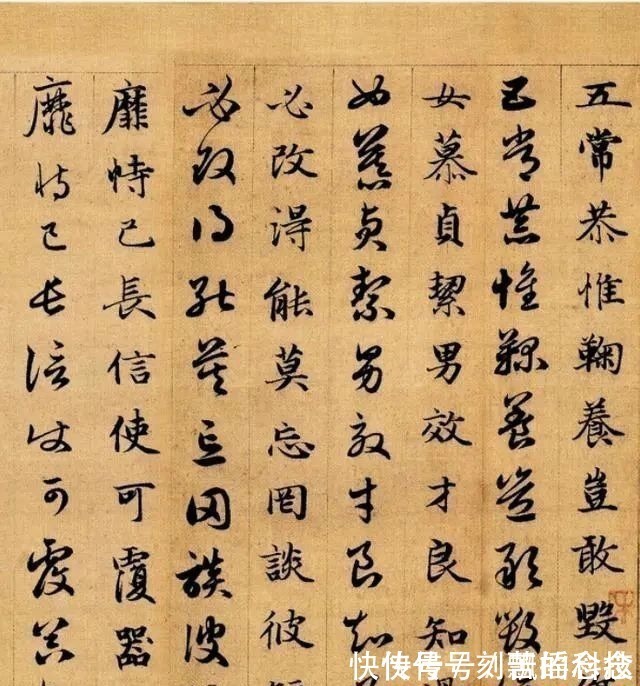 五常恭惟鞠養豈敢毀
五常恭惟鞠養豈敢毀
女慕貞絜男效才良知
女慕貞絜男效才良知
必改得能莫忘罔談彼短
必改得能莫忘罔談彼
靡恃己長信使可覆器
靡恃己長信使可覆器